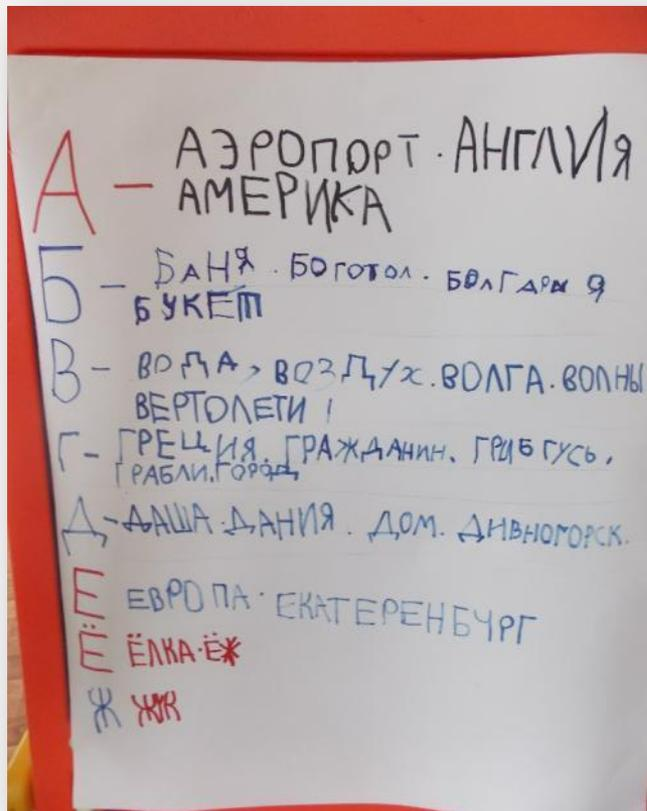 А – АЭРОПОРТ · АНГЛИЯ
АМЕРИКА
Б – БАНЯ · БОГОТОЛ · БОЛГАРИЯ
БУКЕТ
В – ВОДА, ВОЗДУХ. ВОЛГА. ВОЛНЫ
ВЕРТОЛЕТИ!
Г – ГРЕЦИЯ. ГРАЖДАНИН. ГРИБ ГУСЬ.
ГРАБЛИ. ГОРОД
Д – ДАША · ДАНИЯ. ДОМ. ДИВНОГОРСК.
Е ЕВРОПА · ЕКАТЕРЕНБУРГ
Ё ЁЛКА · ЁЖ
Ж ЖУК